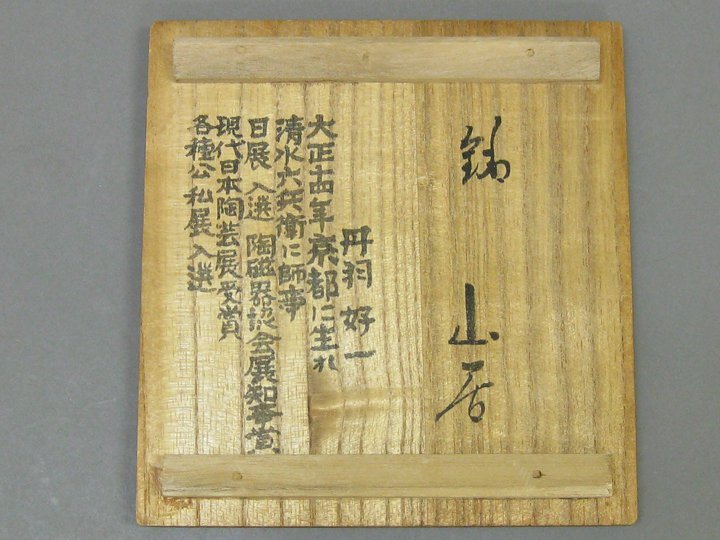 銘 山居
丹羽 好一
大正十四年京都に生れ
清水六兵衛に師事
日展 入選 陶磁器会展知事賞
現代日本陶芸展受賞
各種公私展 入選